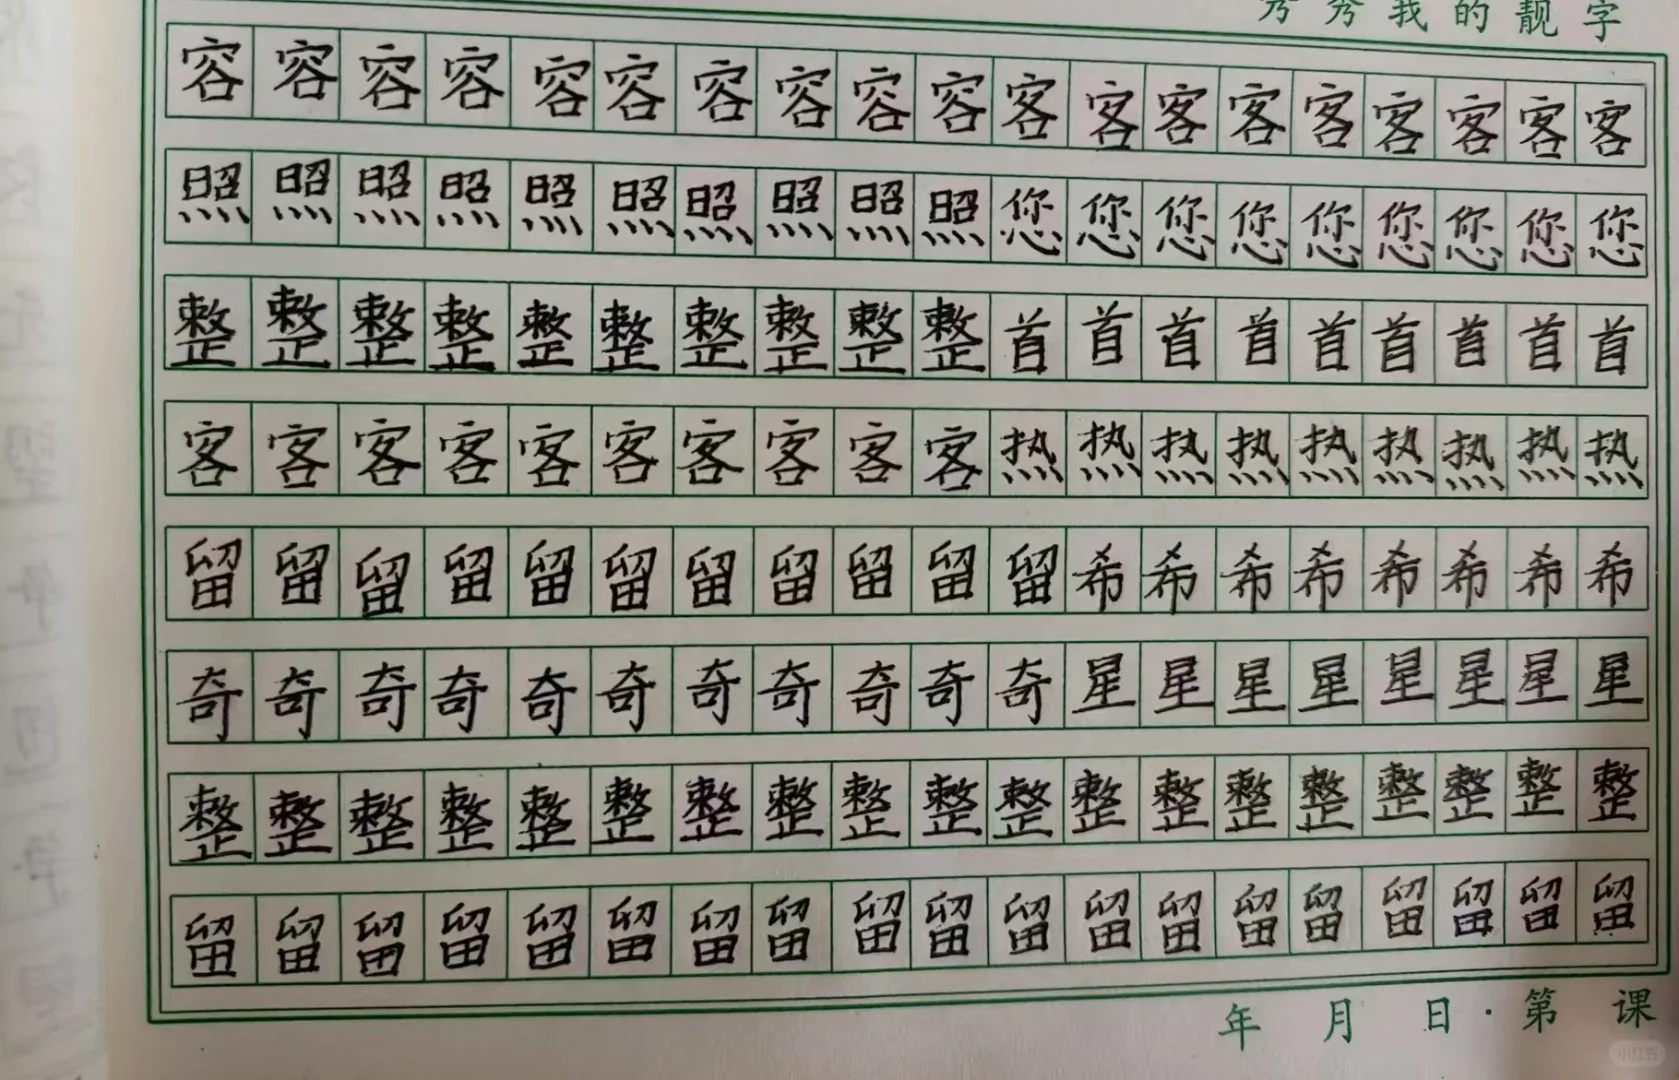 秀秀我的靓字
容容容容容容容容容容客客客客客客客客客
照照照照照照照照照照您您您您您您您您您
整整整整整整整整整整首首首首首首首首首
客客客客客客客客客客热热热热热热热热热
留留留留留留留留留留留希希希希希希希希
奇奇奇奇奇奇奇奇奇奇奇星星星星星星星星
整整整整整整整整整整整整整整整整整整整
留留留留留留留留留留留留留留留留留留留
年 月 日·第 课
小红书